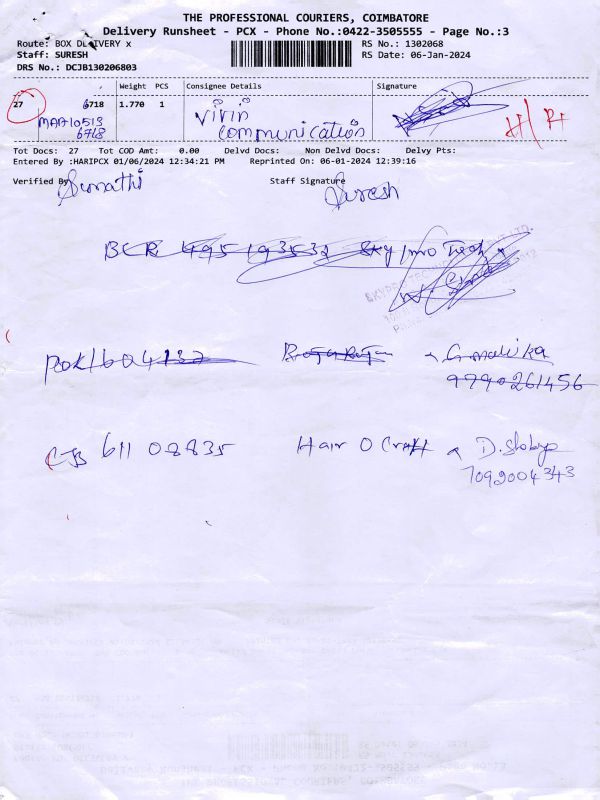 THE PROFESSIONAL COURIERS, COIMBATORE
Delivery Runsheet - PCX - Phone No.:0422-3505555 - Page No.:3
Route: BOX DELIVERY x RS No.: 1302068
Staff: SURESH RS Date: 06-Jan-2024
DRS No.: DCJB130206803
Weight PCS Consignee Details Signature
27 6718 1.770 1 Vivin
MAA710513 communication H/R+
6718
Tot Docs: 27 Tot COD Amt: 0.00 Delvd Docs: Non Delvd Docs: Delvy Pts:
Entered By :HARIPCX 01/06/2024 12:34:21 PM Reprinted On: 06-01-2024 12:39:16
Verified By Sumathi Staff Signature Suresh
BLR 495193532 Sky pro Tech
604137
9790261456
CJB 611 08835 Hair O Craft
7092004343